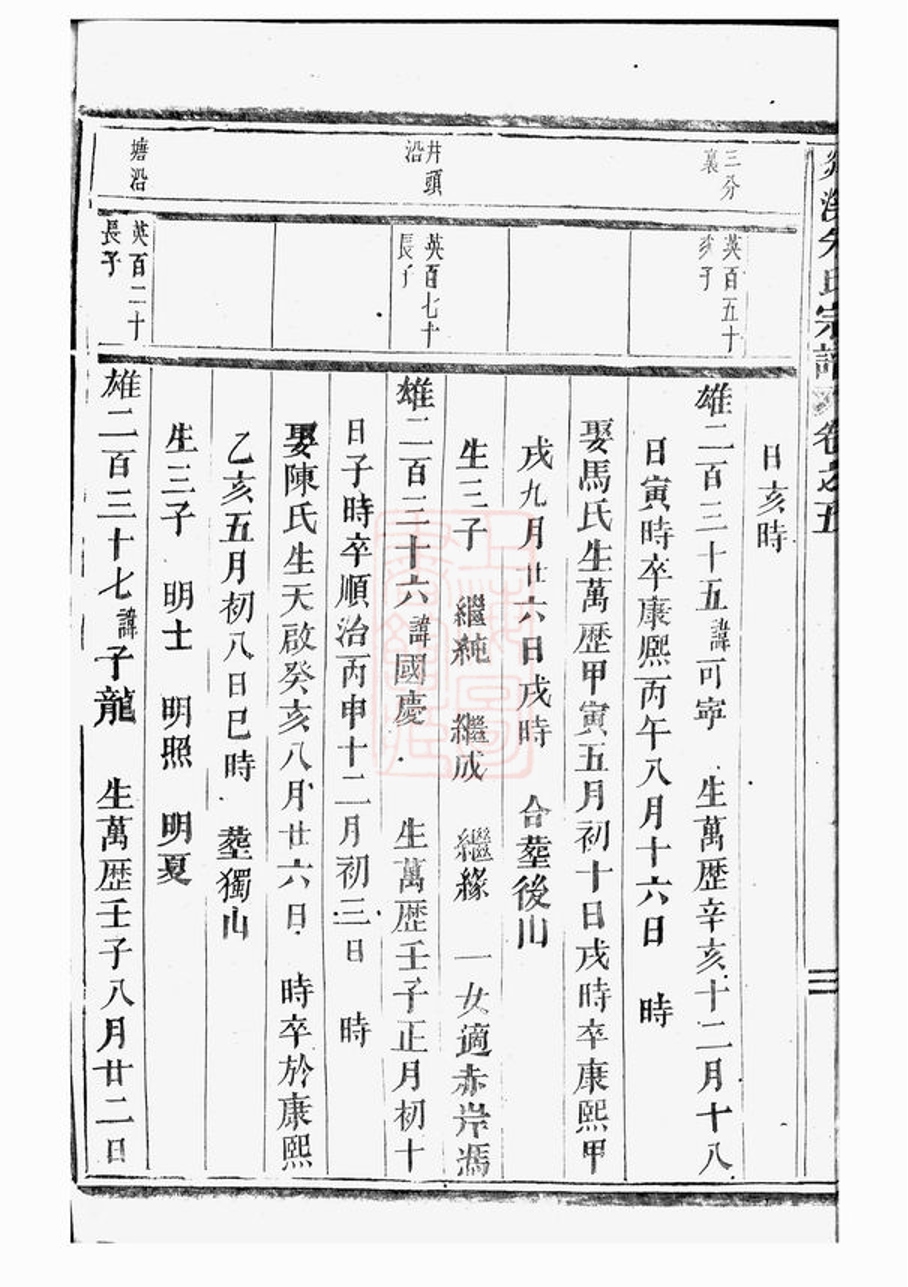 宗譜 卷之五
日亥時
三分
裏
英百五十
子
雄二百三十五諱可寧 生萬歷辛亥十二月十八
日寅時卒康熙丙午八月十六日 時
娶馬氏生萬歷甲寅五月初十日戌時卒康熙甲
戌九月廿六日戌時 合塟後山
生三子 繼純 繼成 繼緣 一女適赤岸馮
井頭
沿
英百七十
長子
雄二百三十六諱國慶 生萬歷壬子正月初十
日子時卒順治丙申十二月初三日 時
娶陳氏生天啟癸亥八月廿六日 時卒於康熙
乙亥五月初八日巳時 塟獨山
生三子 明士 明照 明夏
塘沿
英百二十
長子
雄二百三十七諱子龍 生萬歷壬子八月廿二日